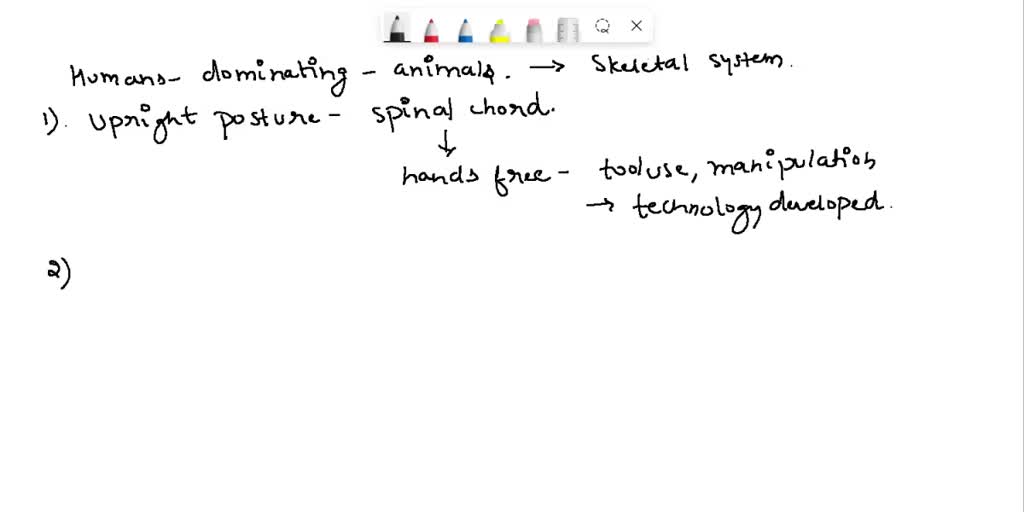 Humans - dominating - animals. → Skeletal system.
1). Upright posture - spinal chord.
↓
hands free - tool use, manipulation
→ technology developed.
2)